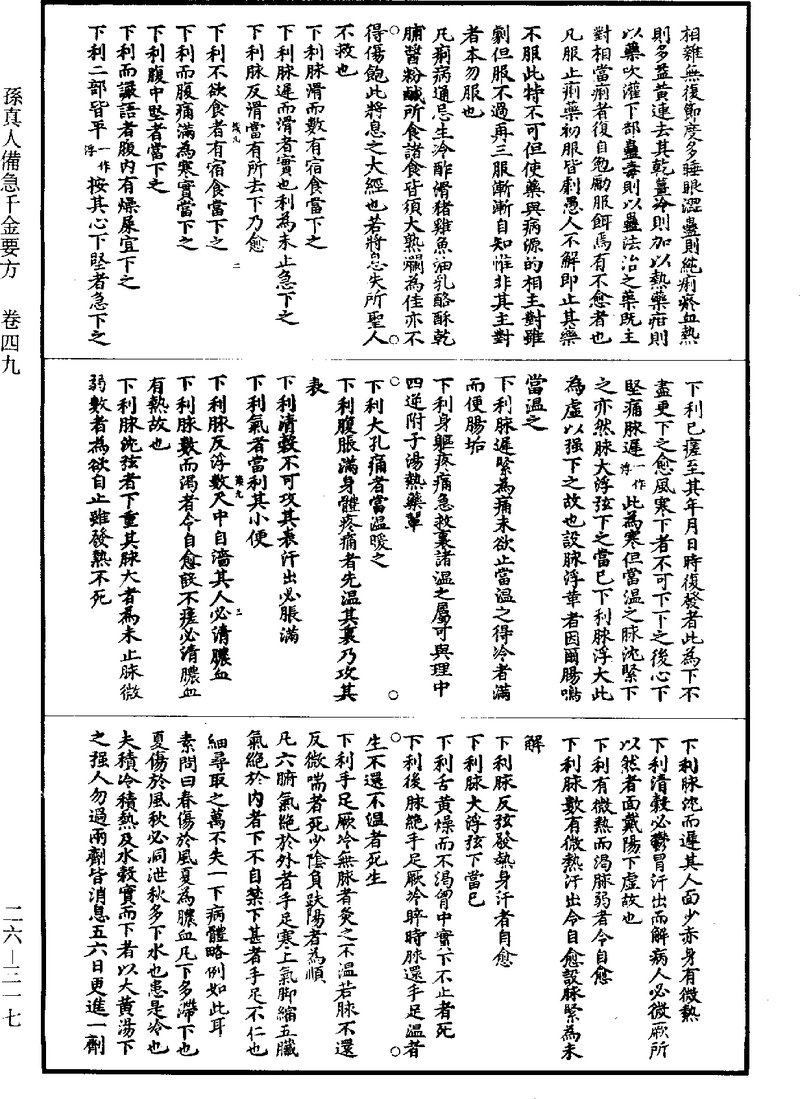 孫真人備急千金要方　卷四九
二六—三一七
相雜無復節度多睡眼澀蠱則純痢瘀血熱
則多益黃連去其乾薑冷則加以熱藥疳則
以藥吹灌下部蠱毒則以蠱法治之藥既主
對相當痢者復自勉勵服餌焉有不愈者也
凡服止痢藥初服皆劇愚人不解即止其藥
不服此特不可但使藥與病源的相主對雖
劇但服不過再三服漸漸自知惟非其主對
者本勿服也
凡痢病通忌生冷酢滑猪雞魚油乳酪酥乾
脯醬粉鹹所食諸食皆須大熟爛為佳亦不
得傷飽此將息之大經也若將息失所聖人
不救也
下利脉滑而數有宿食當下之
下利脉遲而滑者實也利為未止急下之
下利脉反滑當有所去下乃愈
下利不欲食者有宿食當下之
下利而腹痛滿為寒實當下之
下利腹中堅者當下之
下利而讝語者腹內有燥屎宜下之
下利二部皆平一作浮按其心下堅者急下之
下利已瘥至其年月日時復發者此為下不
盡更下之愈風寒下者不可下下之後心下
堅痛脉遲一作浮此為寒但當溫之脉沈緊下
之亦然脉大浮弦下之當已下利脉浮大此
為虛以强下之故也設脉浮革者因爾腸鳴
當溫之
下利脉遲緊為痛未欲止當溫之得冷者滿
而便腸垢
下利身軀疼痛急救裏諸溫之屬可與理中
四逆附子湯熱藥輩
下利大孔痛者當溫暖之
下利腹脹滿身體疼痛者先溫其裏乃攻其
表
下利清穀不可攻其表汗出必脹滿
下利氣者當利其小便
下利脉反浮數尺中自濇其人必清膿血
下利脉數而渴者今自愈設不瘥必清膿血
有熱故也
下利脉沈弦者下重其脉大者為未止脉微
弱數者為欲自止雖發熱不死
下利脉沈而遲其人面少赤身有微熱
下利清穀必鬱冒汗出而解病人必微厥所
以然者面戴陽下虛故也
下利有微熱而渴脉弱者今自愈
下利脉數有微熱汗出今自愈設脉緊為未
解
下利脉反弦發熱身汗者自愈
下利脉大浮弦下當已
下利舌黃燥而不渴胷中實下不止者死
下利後脉絕手足厥冷晬時脉還手足溫者
生不還不溫者死生
下利手足厥冷無脉者灸之不溫若脉不還
反微喘者死少陰負趺陽者為順
凡六腑氣絕於外者手足寒上氣脚縮五臟
氣絕於內者下不自禁下甚者手足不仁也
細尋取之萬不失一下病體略例如此耳
素問曰春傷於風夏為膿血凡下多滯下也
夏傷於風秋必洞泄秋多下水也患是冷也
夫積冷積熱及水穀實而下者以大黃湯下
之强人勿過兩劑皆消息五六日更進一劑